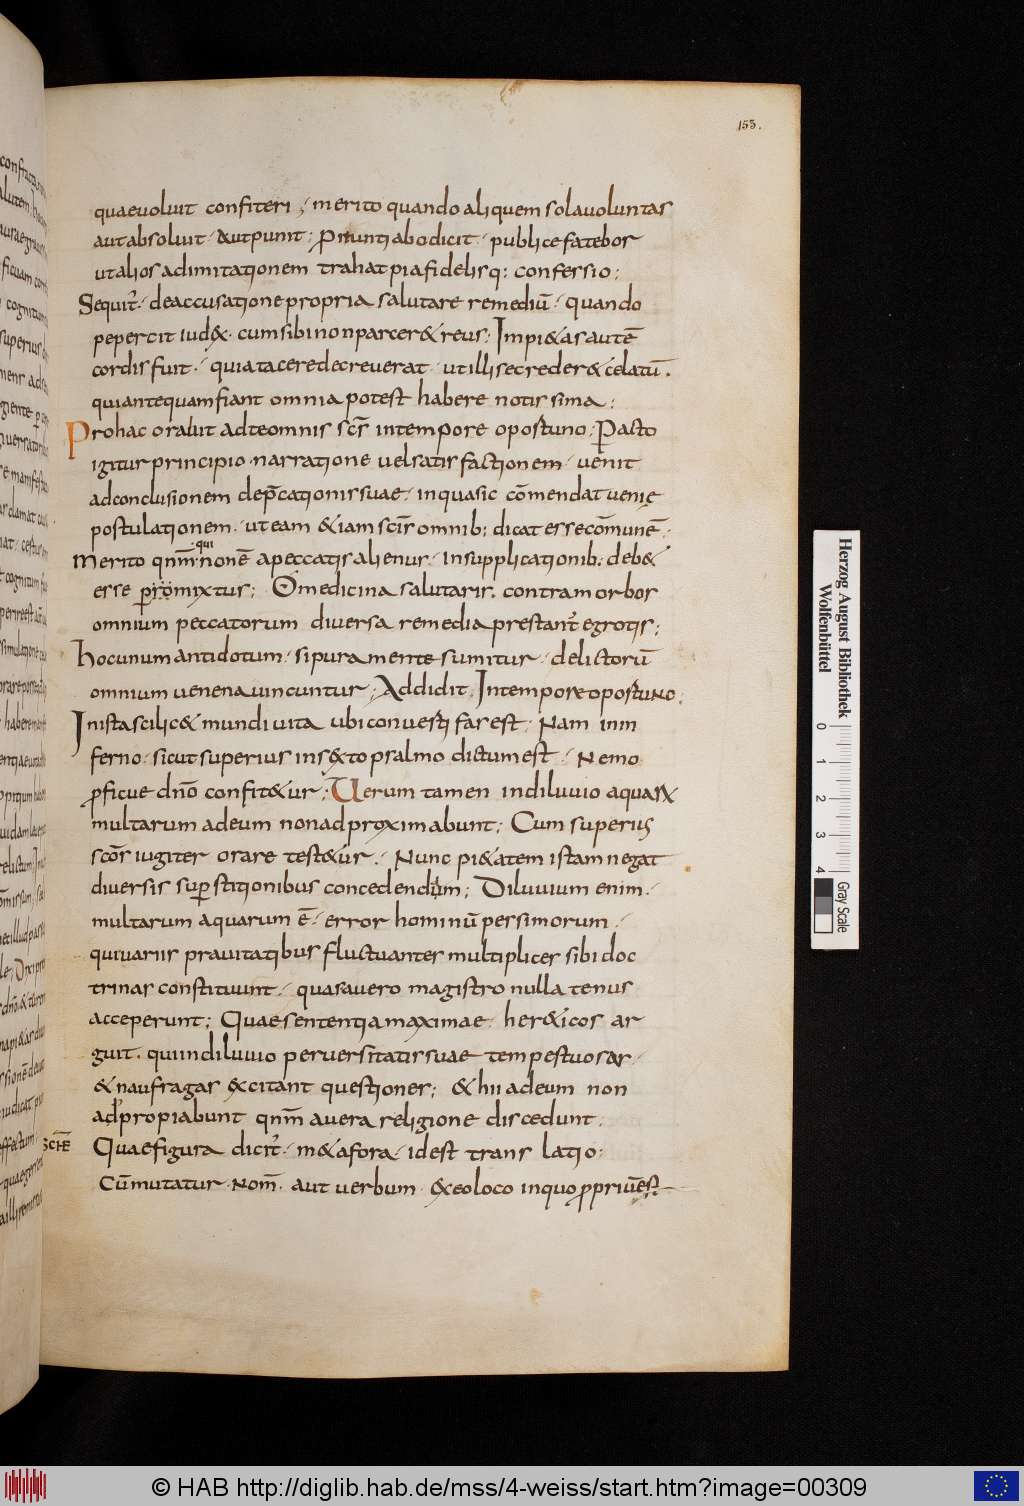 153.
quaevoluit confiteri; merito quando aliquem sola voluntas
aut absoluit · aut punit; Pnuntiabo dicit · publice fatebor
ut alios ad imitationem trahat pia fidelisq: confessio;
Sequit᷑ · de accusatione propria salutare remediū · quando
pepercit iudex · cum sibi non parcer& reus; Impi&as autē
cordis fuit · quia tacere decreuerat · ut illi se creder& celatū .
qui antequam fiant omnia potest habere notissima;
Pro hac orabit ad te omnis scs̄ in tempore oportuno; Pacto
igitur principio · narratione uel satisfactionem · uenit
ad conclusionem dep̄cationis suae · in qua sic cōmendat uenię
postulationem · ut eam &iam scīs omnib; dicat esse cōmunē ·
qui
merito qnm̄ · non ē a peccatis alienus · in supplicationib; deb&
esse promixtus; O medicina salutaris . contra morbos
omnium peccatorum diuersa remedia prestant᷑ egrotis;
hoc unum antidotum · si pura mente sumitur · delictorū
omnium uenena uincuntur; Addidit . In tempore oportuno;
In ista scilic& mundi uita ubi conuerti fas est · Nam in in
ferno · sicut superius in sexto psalmo dictum est · Nemo
pficue dnō confit&ur; Uerum tamen in diluuio aquarum
multarum ad eum non adproximabunt; Cum superius
scōs iugiter orare test&ur · Nunc pi&atem istam negat
diuersis superstitionibus concedendum; Diluuium enim ·
multarum aquarum ē · error hominū pessimorum ·
qui uariis prauitatibus fluctuantes multiplices sibi doc
trinas constituunt · quas a uero magistro nullatenus
acceperunt; Quae sententia maxime her&icos ar
guit . qui in diluuio peruersitatis suae tempestuosas ·
& naufragas excitant questiones; & hii ad eum non
adpropiabunt qnm̄ a uera religione discedunt .
SCHE Quae figura dicit᷑ · m&afora · id est translatio;
Cū mutatur · nom̄ . aut uerbum · ex eo loco in quo propriū est
Herzog August Bibliothek
Wolfenbüttel
0 1 2 3 4
Gray Scale
© HAB http://diglib.hab.de/mss/4-weiss/start.htm?image=00309